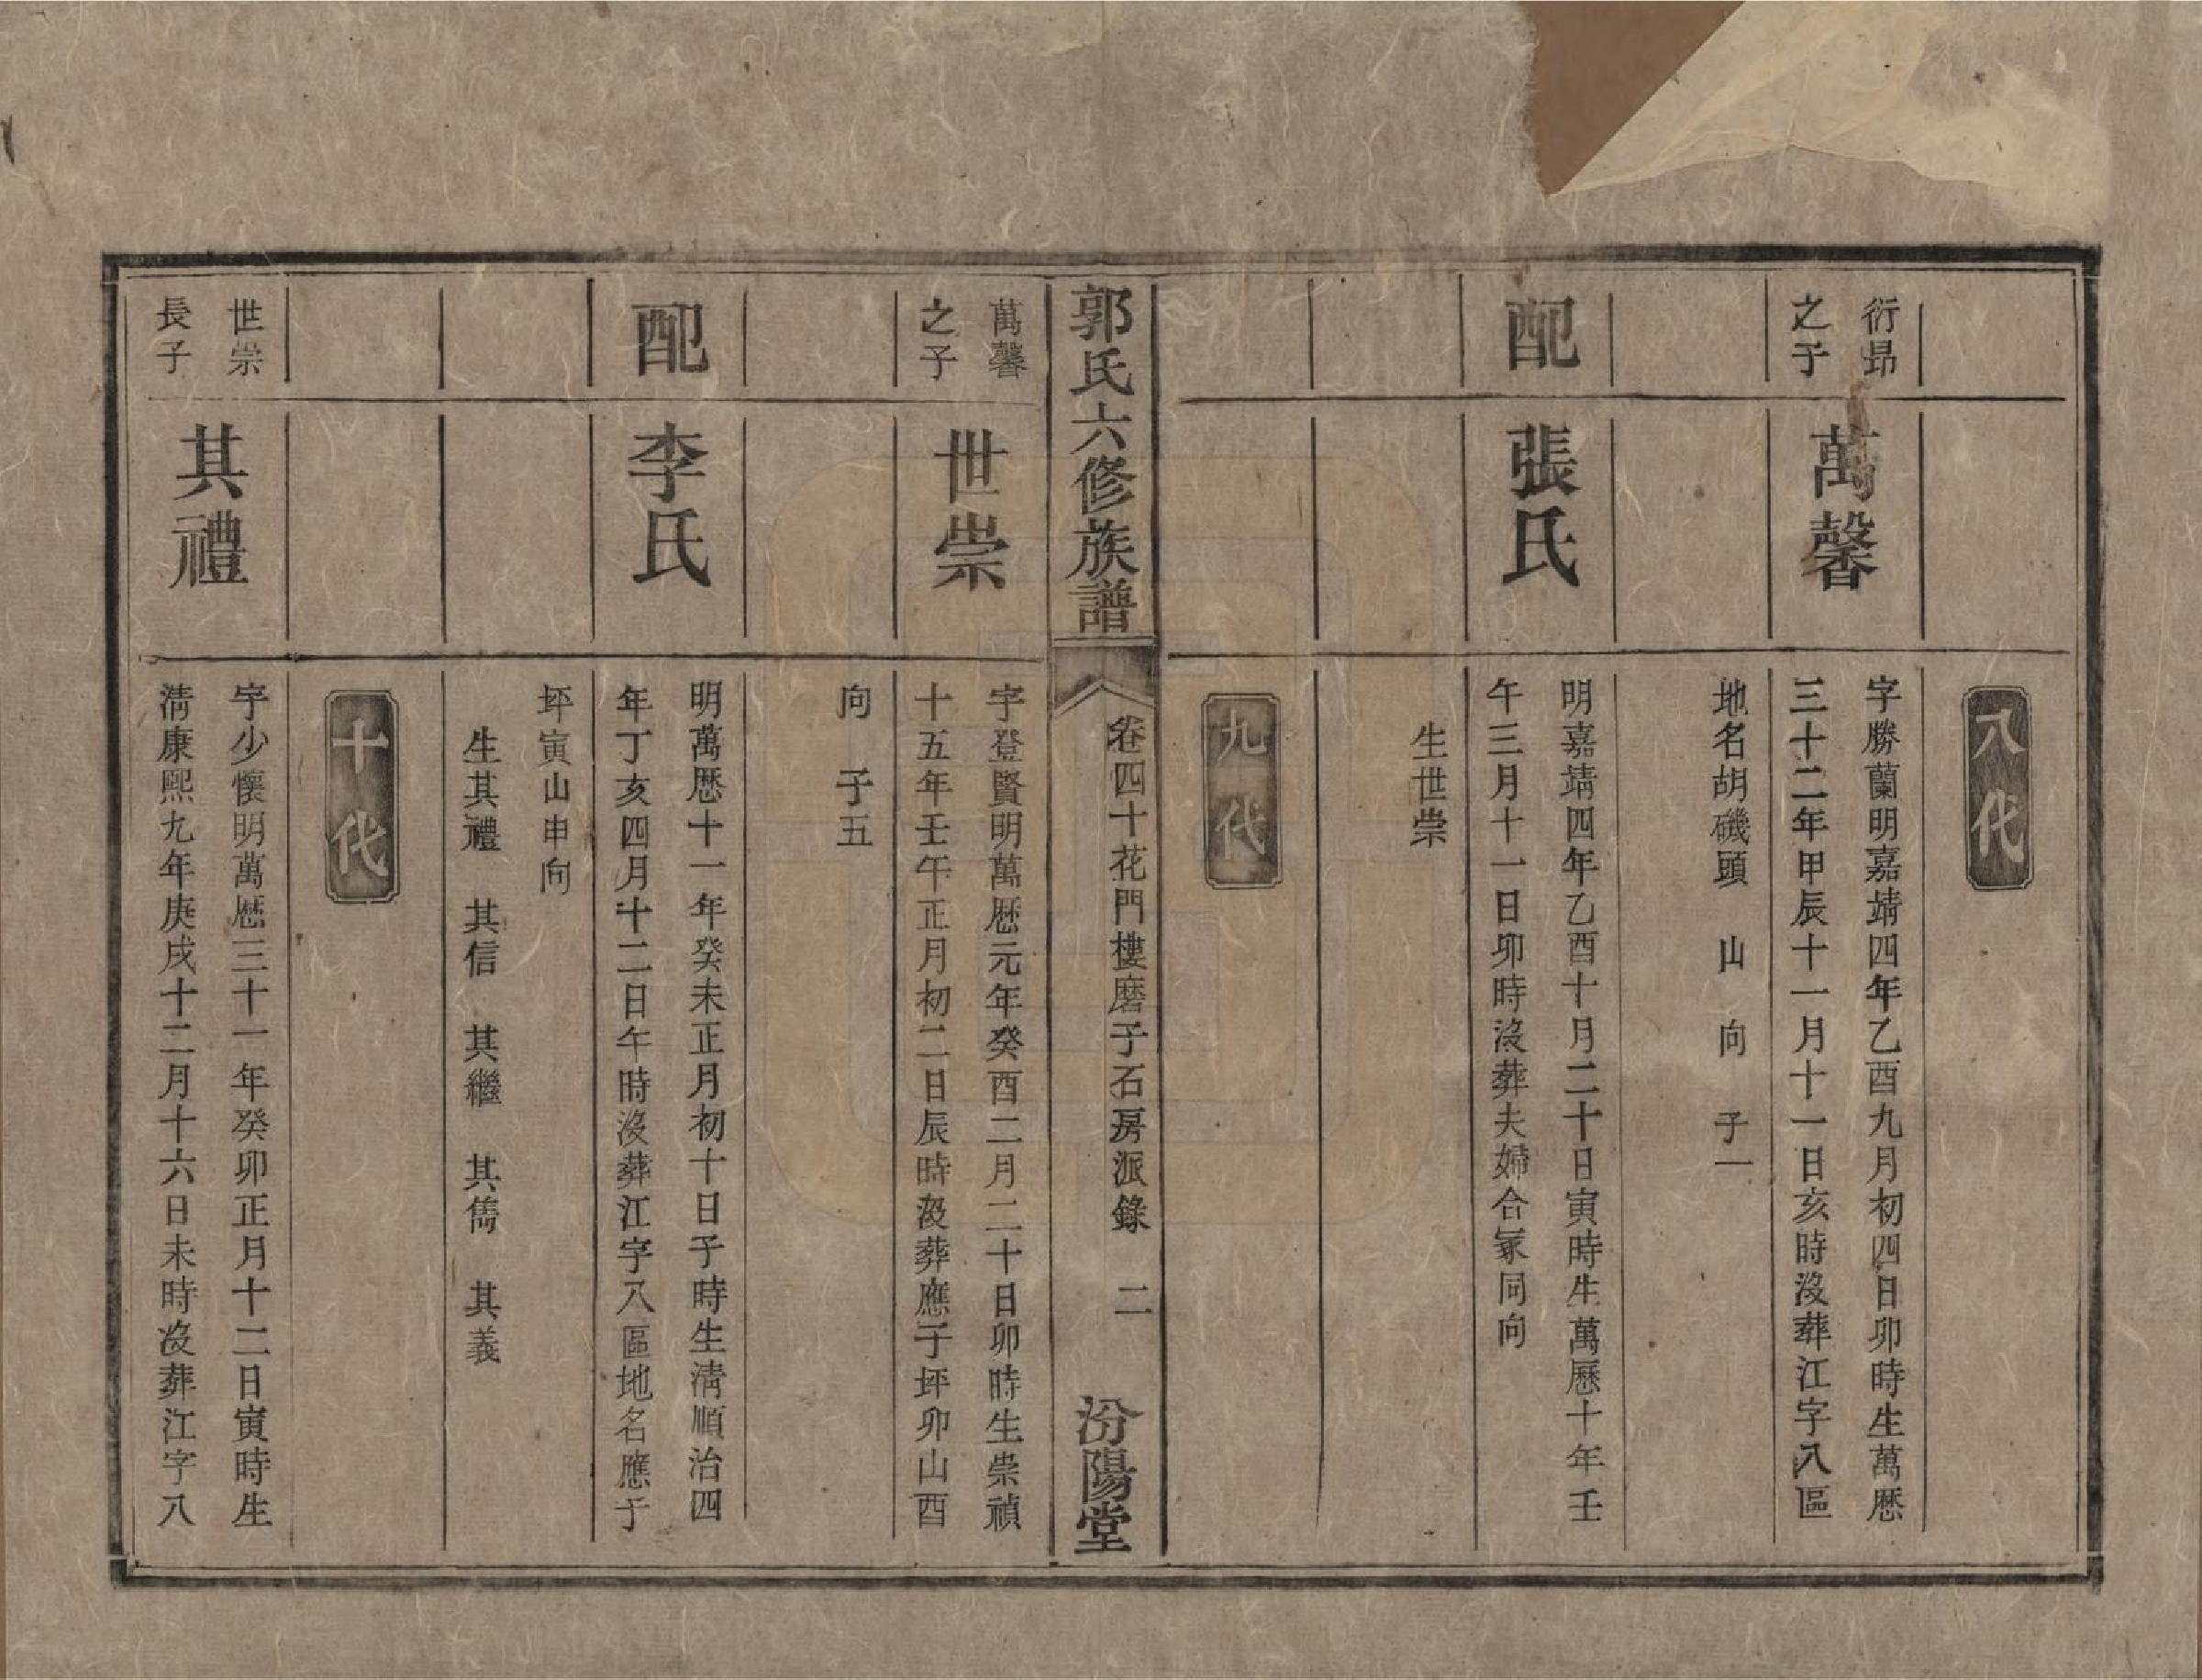 八代
衍昻
之子
萬馨
字勝蘭明嘉靖四年乙酉九月初四日卯時生萬歷
三十二年甲辰十一月十一日亥時沒葬江字八區
地名胡磯頭　山　向　子一
配
張氏
明嘉靖四年乙酉十月二十日寅時生萬歷十年壬
午三月十一日卯時沒葬夫婦合冢同向
生世崇
九代
郭氏六修族譜
卷四十花門樓磨子石房派錄　二
汾陽堂
萬馨
之子
世崇
字登賢明萬歷元年癸酉二月二十日卯時生崇禎
十五年壬午正月初二日辰時沒葬應子坪卯山酉
向　子五
配
李氏
明萬歷十一年癸未正月初十日子時生淸順治四
年丁亥四月十二日午時沒葬江字八區地名應子
坪寅山申向
生其禮　其信　其繼　其儁　其義
十代
世崇
長子
其禮
字少懷明萬歷三十一年癸卯正月十二日寅時生
淸康熙九年庚戌十二月十六日未時沒葬江字八